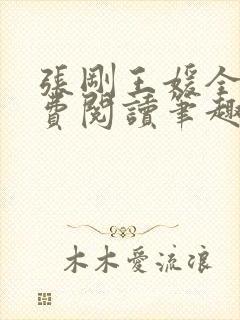 張剛王媛全
費閱讀筆趣
木木愛流浪